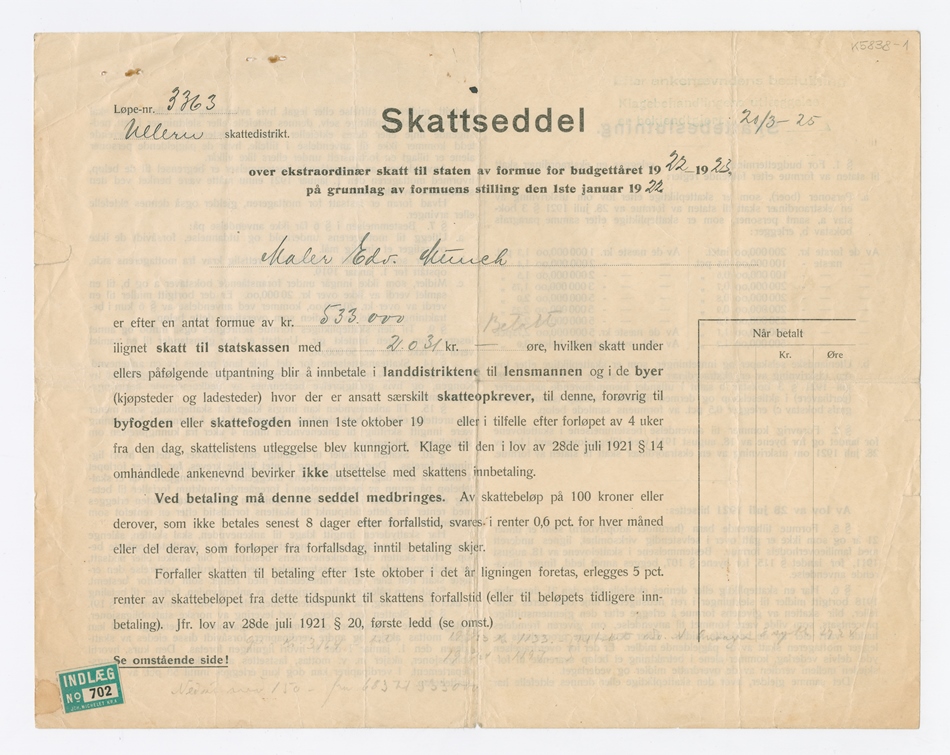 K5838-1
Løpe-nr. 3363
Ullern skattedistrikt.
Skattseddel
21/3-25
over ekstraordinær skatt til staten av formue for budgettåret 1922-1923.
på grunnlag av formuens stilling den 1ste januar 1922
Maler Edv. Munch
er efter en antat formue av kr. 533.000
Betalt
ilignet skatt til statskassen med 2.031 kr. — øre, hvilken skatt under
ellers påfølgende utpantning blir å innbetale i landdistriktene til lensmannen og i de byer
(kjøpsteder og ladesteder) hvor der er ansatt særskilt skatteopkrever, til denne, forøvrig til
byfogden eller skattefogden innen 1ste oktober 19 eller i tilfelle efter forløpet av 4 uker
fra den dag, skattelistens utleggelse blev kunngjort. Klage til den i lov av 28de juli 1921 § 14
omhandlede ankenevnd bevirker ikke utsettelse med skattens innbetaling.
Ved betaling må denne seddel medbringes. Av skattebeløp på 100 kroner eller
derover, som ikke betales senest 8 dager efter forfallstid, svares i renter 0,6 pct. for hver måned
eller del derav, som forløper fra forfallsdag, inntil betaling skjer.
Forfaller skatten til betaling efter 1ste oktober i det år ligningen foretas, erlegges 5 pct.
renter av skattebeløpet fra dette tidspunkt til skattens forfallstid (eller til beløpets tidligere inn-
betaling). Jfr. lov av 28de juli 1921 § 20, første ledd (se omst.)
Se omstående side!
Når betalt
Kr. Øre
INDLÆG
No 702